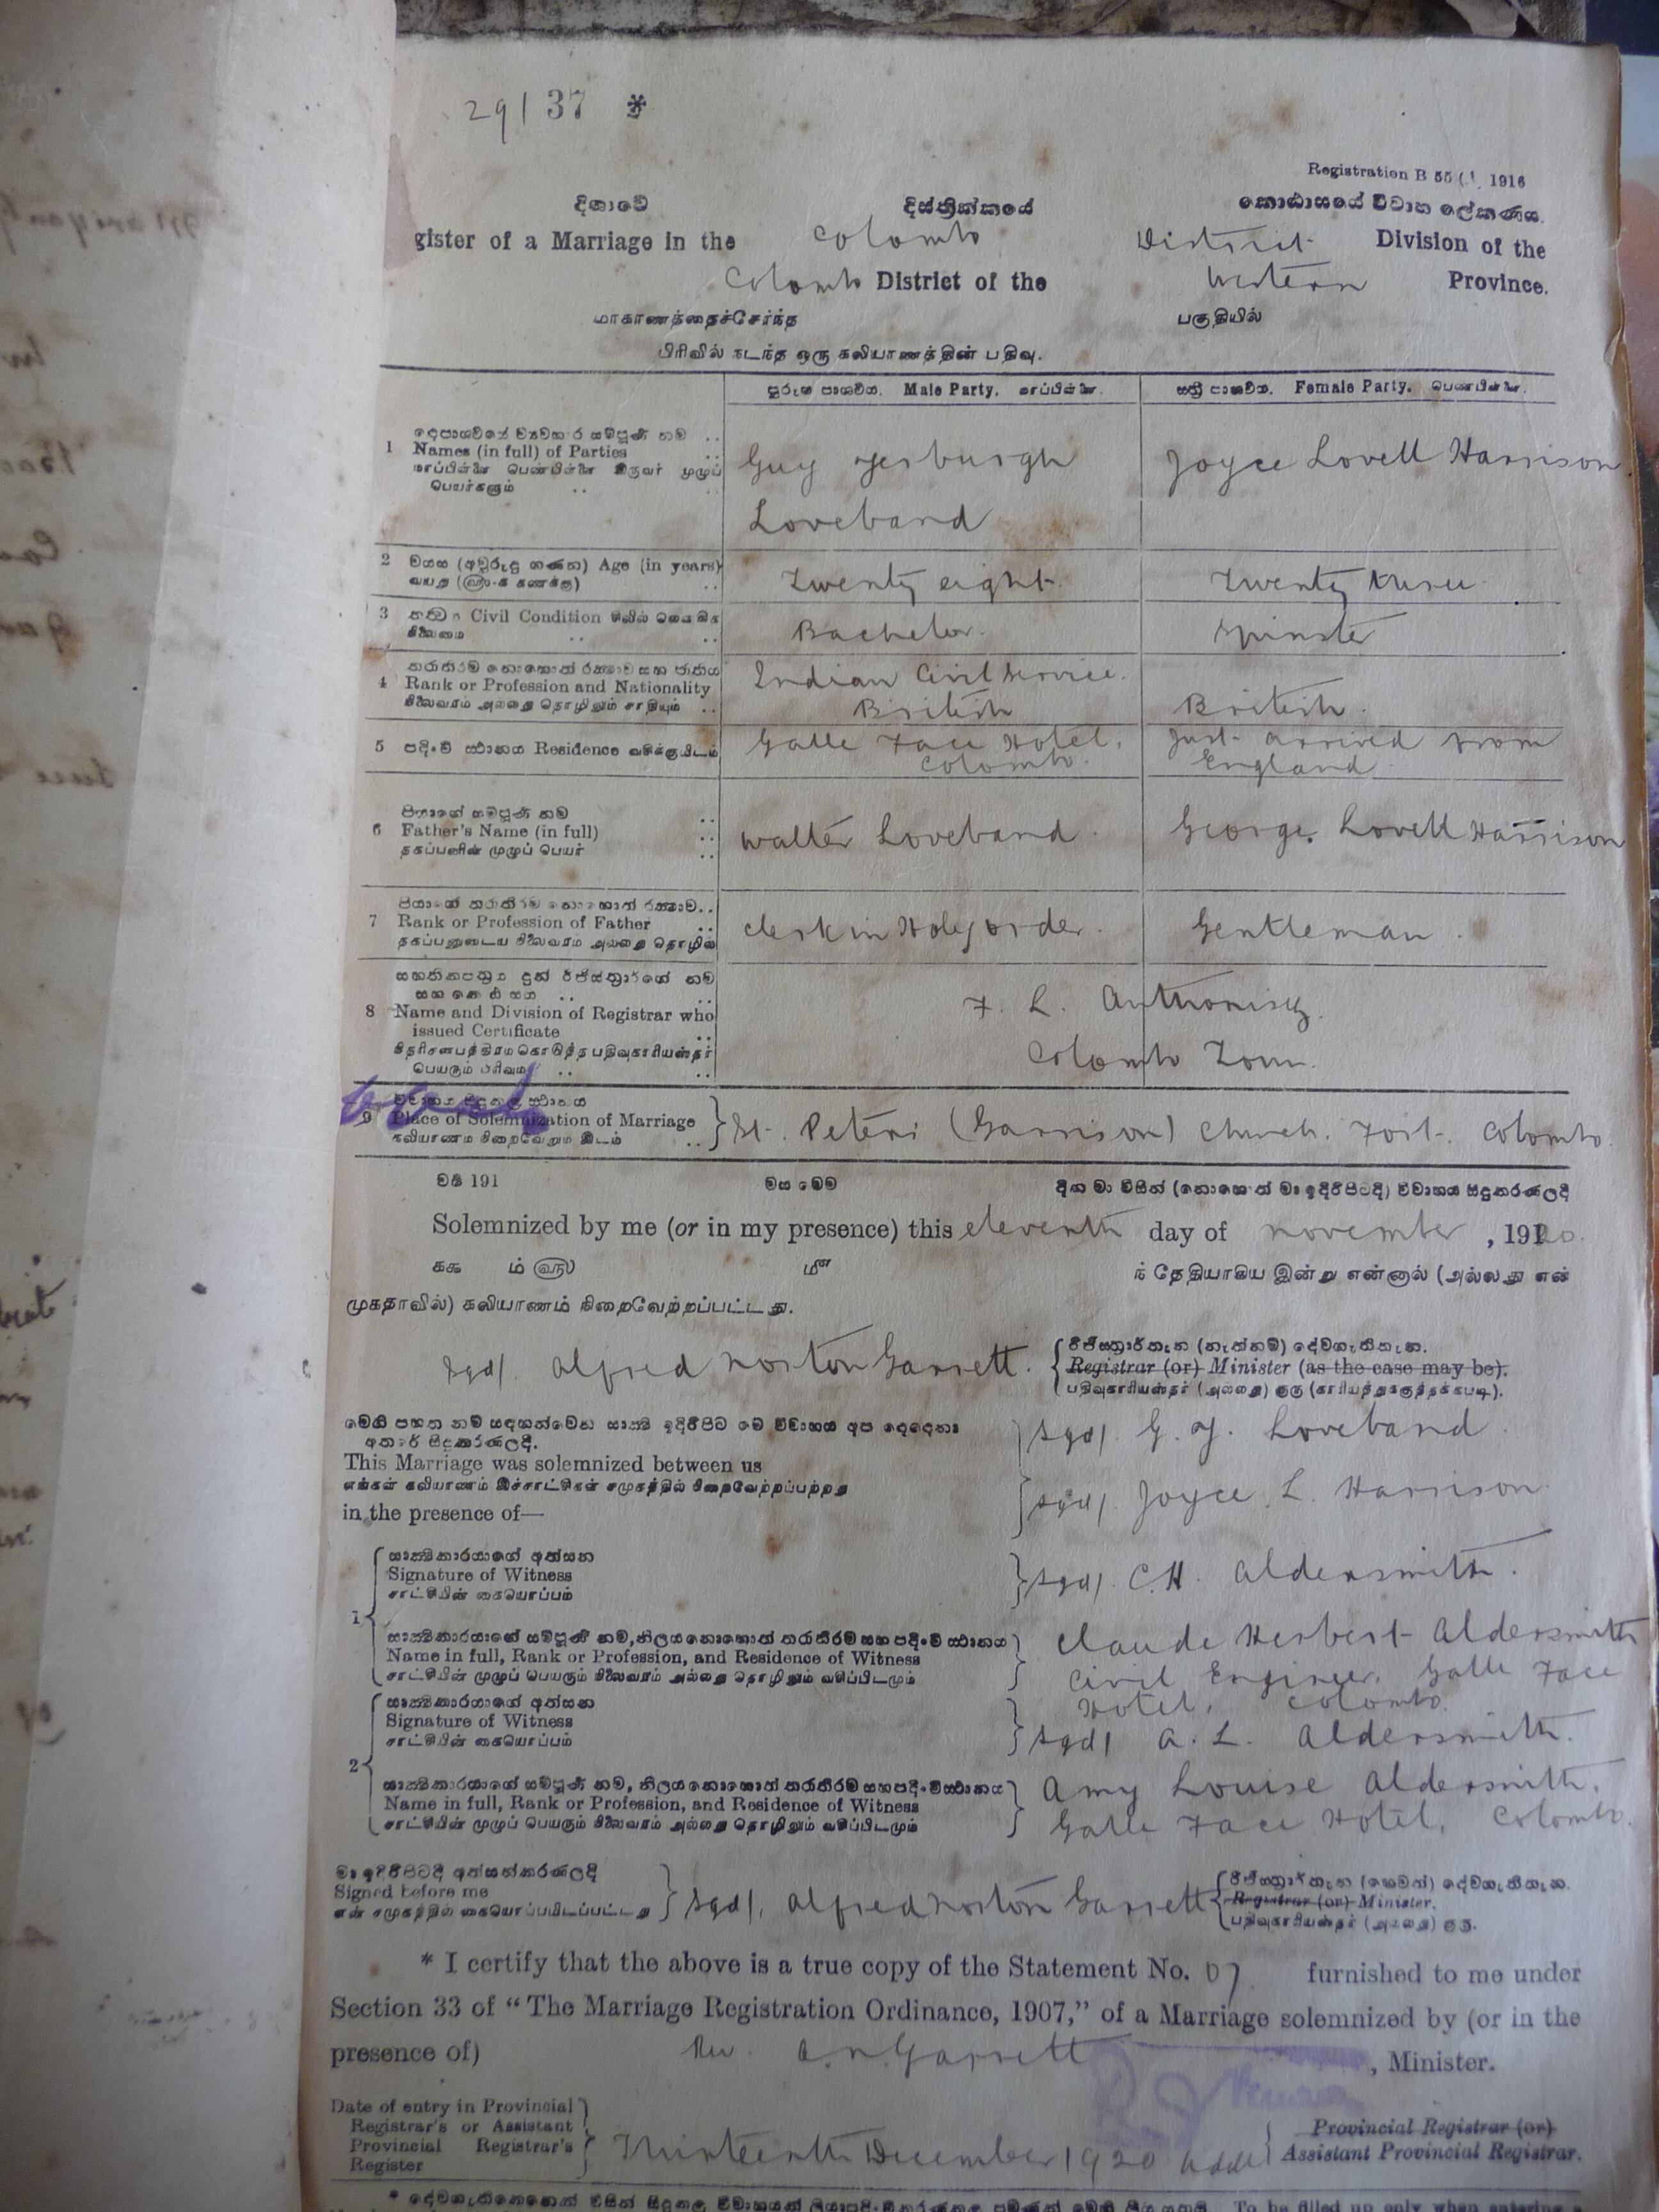 29/37 *
Registration B 55 1916
දිශාවේ දිස්ත්‍රික්කයේ කොඨාසයේ විවාහ ලේකණය
gister of a Marriage in the Colombo District Division of the
Colombo District of the Western Province.
மாகாணத்தைச்சேர்ந்த பகுதியில்
பிரிவில் நடந்த ஒரு கலியாணத்தின் பதிவு.
Male Party. மாப்பிள்ளை. Female Party. பெண்பிள்ளை.
1 Names (in full) of Parties Guy Yesburgh Joyce Lovell Harrison
மாப்பிள்ளை பெண்பிள்ளை இருவர் முழுப்
பெயர்களும் Loveband
2 වයස (අවුරුදු ගණන) Age (in years) Twenty eight. Twenty three
வயது
3 Civil Condition Bachelor. Spinster
நிலைமை
4 Rank or Profession and Nationality Indian Civil Service.
British British.
நிலைவரம் அல்லது தொழிலும் சாதியும்
5 පදිංචි ස්ථානය Residence வசிக்குமிடம் Galle Face Hotel, Colombo. Just arrived from England
6 පියාගේ සම්පූර්ණ නම
Father's Name (in full) Walter Loveband. George Lovell Harrison
தகப்பனின் முழுப் பெயர்
7 Rank or Profession of Father Clerk in Holy order. Gentleman.
தகப்பனுடைய நிலைவரம் அல்லது தொழில்
8 Name and Division of Registrar who F. L. Anthonisz.
issued Certificate Colombo Town.
பெயரும் பிரிவும்
9 Place of Solemnization of Marriage } St. Peters (Garrison) Church. Fort. Colombo.
கலியாணம் நிறைவேறும் இடம்
වම් 191 මස මෙම දින මා විසින් (නොහොත් මා ඉදිරිපිටදී) විවාහය සිදුකරණලදි
Solemnized by me (or in my presence) this eleventh day of november, 1920.
ககூ ம் ௵ மீ ந் தேதியாகிய இன்று என்னால் (அல்லது என்
முகதாவில்) கலியாணம் நிறைவேற்றப்பட்டது.
Sgd/. Alfred Norton Garrett. Registrar (or) Minister (as the case may be).
பதிவுகாரியஸ்தர் (அல்லது) குரு (காரியத்துக்குத்தக்கபடி).
This Marriage was solemnized between us Sgd/. G. Y. Loveband.
எங்கள் கலியாணம் இச்சாட்சிகள் சமுகத்தில் நிறைவேற்றப்பற்றது
in the presence of— Sgd/. Joyce. L. Harrison.
සාක්ෂිකාරයාගේ අත්සන
Signature of Witness } Sgd/. C.H. Aldersmith.
சாட்சியின் கையொப்பம்
1
Name in full, Rank or Profession, and Residence of Witness } Claude Herbert Aldersmith
Civil Engineer, Galle Face
Hotel, Colombo.
சாட்சியின் முழுப் பெயரும் நிலைவரம் அல்லது தொழிலும் வசிப்பிடமும்
සාක්ෂිකාරයාගේ අත්සන
Signature of Witness } Sgd/ A. L. Aldersmith.
சாட்சியின் கையொப்பம்
2
Name in full, Rank or Profession, and Residence of Witness } Amy Louise Aldersmith,
Galle Face Hotel, Colombo.
சாட்சியின் முழுப் பெயரும் நிலைவரம் அல்லது தொழிலும் வசிப்பிடமும்
මා ඉදිරිපිටදී අත්සන්කරණලදි
Signed before me } Sgd/. Alfred Norton Garrett Registrar (or) Minister.
என் சமுகத்தில் கையொப்பமிடப்பட்டது பதிவுகாரியஸ்தர் (அல்லது) குரு.
* I certify that the above is a true copy of the Statement No. 07 furnished to me under
Section 33 of "The Marriage Registration Ordinance, 1907," of a Marriage solemnized by (or in the
presence of) Rev. A. N. Garrett, Minister.
Date of entry in Provincial
Registrar's or Assistant
Provincial Registrar's
Register
Thirteenth December 1920
Provincial Registrar (or)
Assistant Provincial Registrar.
To be filled up only when entering